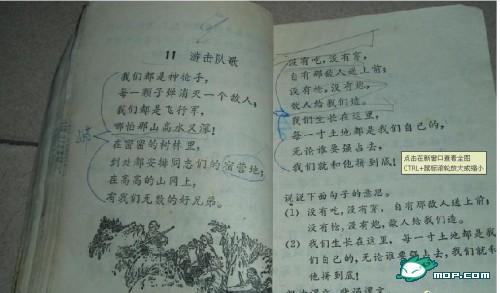 11 游击队歌
我们都是神枪手，
每一颗子弹消灭一个敌人；
我们都是飞行军，
哪怕那山高水又深！
在密密的树林里，
到处都安排同志们的宿营地；
在高高的山冈上，
有我们无数的好兄弟。
没有吃，没有穿，
自有那敌人送上前；
没有枪，没有炮，
敌人给我们造。
我们生长在这里，
每一寸土地都是我们自己的，
无论谁要强占去，
我们就和他拼到底！
点击在新窗口查看全图
CTRL+鼠标滚轮放大或缩小
说说下面句子的意思。
(1) 没有吃，没有穿，自有那敌人送上前；
没有枪，没有炮，敌人给我们造。
(2) 我们生长在这里，每一寸土地都是我
们自己的，无论谁要强占去，我们就和
他拼到底！
MOP.COM